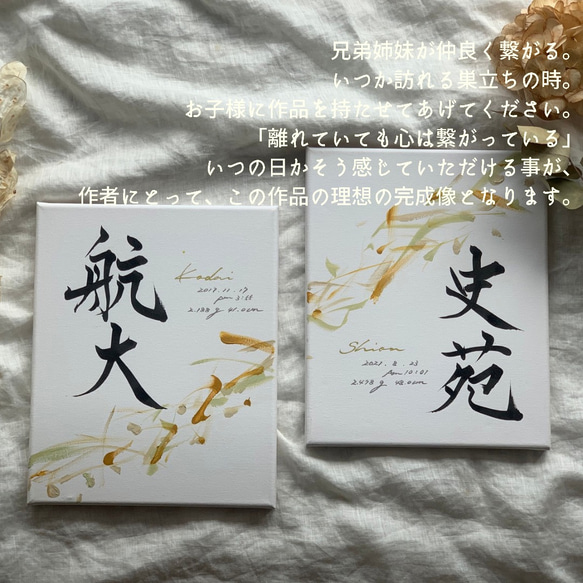 兄弟姉妹が仲良く繋がる。
いつか訪れる巣立ちの時。
お子様に作品を持たせてあげてください。
「離れていても心は繋がっている」
いつの日かそう感じていただける事が、
作者にとって、この作品の理想の完成像となります。
航大
Kodai
2017.11.17
pm 3:55
2.188g 41.0cm
史苑
Shion
2021.2.23
am 10:01
2.478g 48.0cm